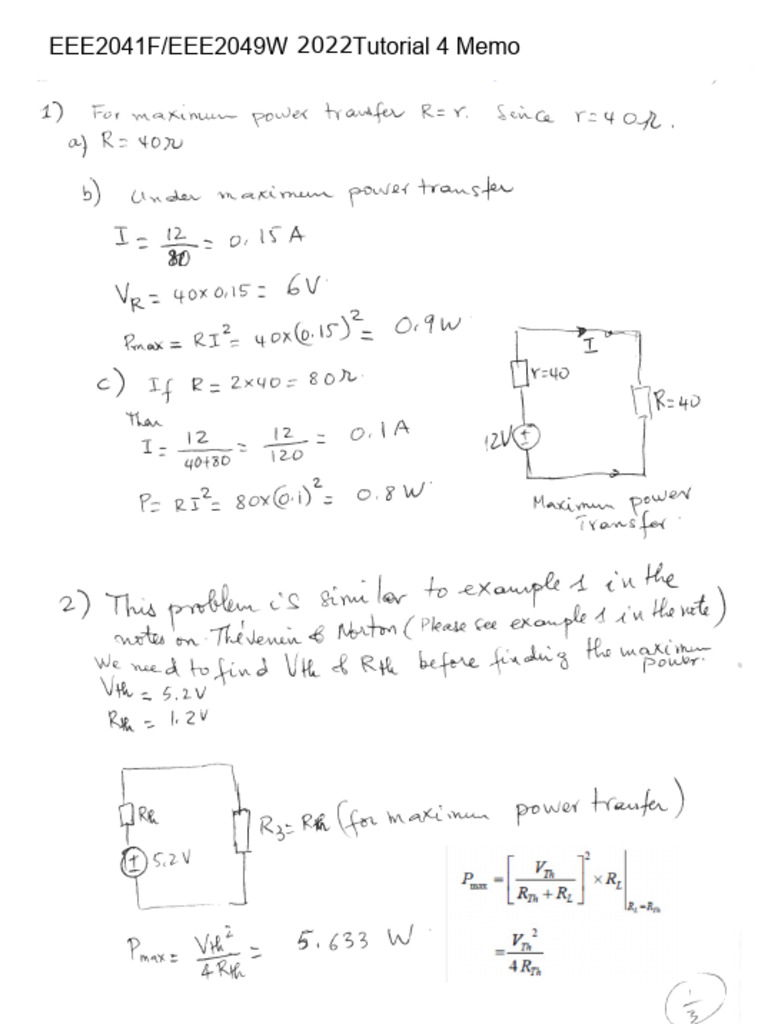 EEE2041F/EEE2049W 2022Tutorial 4 Memo
1) For maximum power transfer R=r. Since r=40Ω.
a) R=40Ω
b) Under maximum power transfer
I = 12/80 = 0.15 A
V_R = 40×0,15 = 6V.
Pmax = RI² = 40×(0.15)² = 0.9W
c) If R = 2×40 = 80Ω.
Then
I = 12/(40+80) = 12/120 = 0.1A
P = RI² = 80×(0.1)² = 0.8W
I
r=40
R=40
12V
Maximum power
Transfer.
2) This problem is similar to example 1 in the
notes on Thévenin & Norton (Please see example 1 in the note)
We need to find Vth & Rth before finding the maximum
power.
Vth = 5.2V
Rth = 1.2V
Rth
5.2V
R3 = Rth (for maximum power transfer)
P_max = [V_Th/(R_Th + R_L)]² × R_L |R_L=R_Th
= V_Th²/4R_Th
Pmax = Vth²/4Rth = 5.633 W
1/3